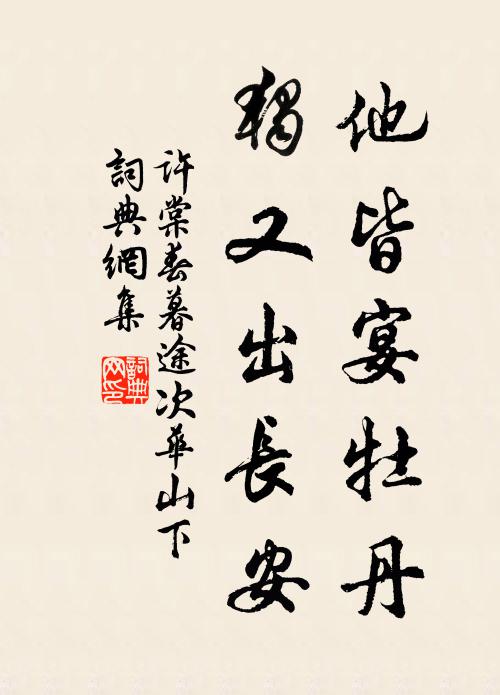 他皆宴牡丹
獨又出長安
許棠春暮途次華山下
詞典網集
詞典网印